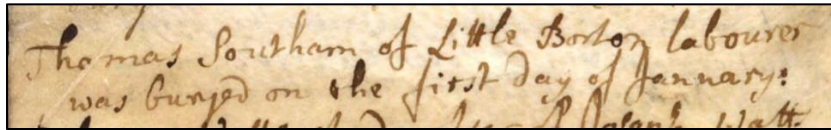 Thomas Southam of Little Borton labourer
was buryed on the first Day of January:
Joseph Watt